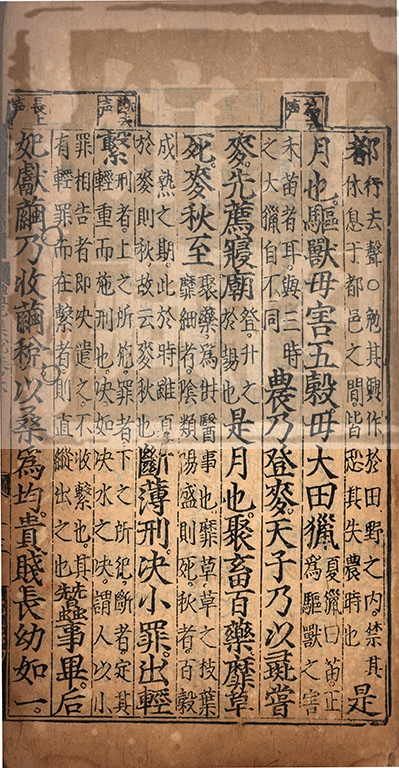 長上声
都行去聲○勉其興作於田野之内禁其休息于都邑之間皆恐其失農時也是
月也驅獸毋害五穀毋大田獵夏獵曰苗正爲驅獸之害
禾苗者耳與三時之大獵自不同農乃登麥天子乃以彘嘗
麥先薦寢廟登升之於場也是月也聚畜百藥靡草
死麥秋至聚藥爲供醫事也靡草草之枝葉靡細者陰類陽盛則死秋者百穀
成熟之期此於時雖夏於麥則秋故云麥秋也斷薄刑决小罪出輕
繫刑者上之所施罪者下之所犯斷者定其輕重而施刑也决如决水之决謂人以小
罪相告者即决遣之不收繫也其有輕罪而在繫者則直縱出之也蠶事畢后
妃獻繭乃收繭稅以桑爲均貴賤長幼如一